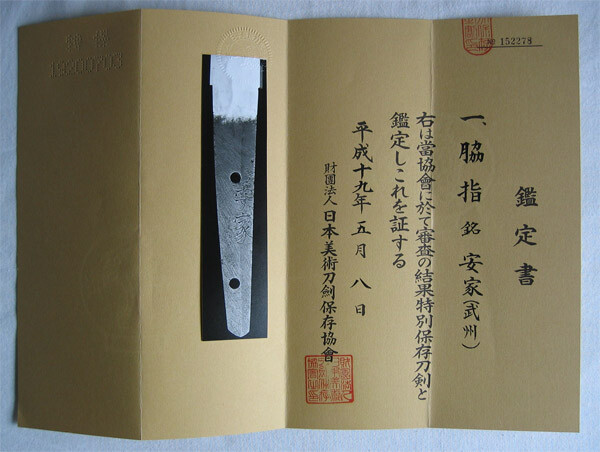 鑑定書
一、脇指 銘 安家(武州)
右は當協會に於て審査の結果特別保存刀剣と
鑑定しこれを証する
平成十九年五月八日
財團法人 日本美術刀劍保存協會
№ 152278
安家